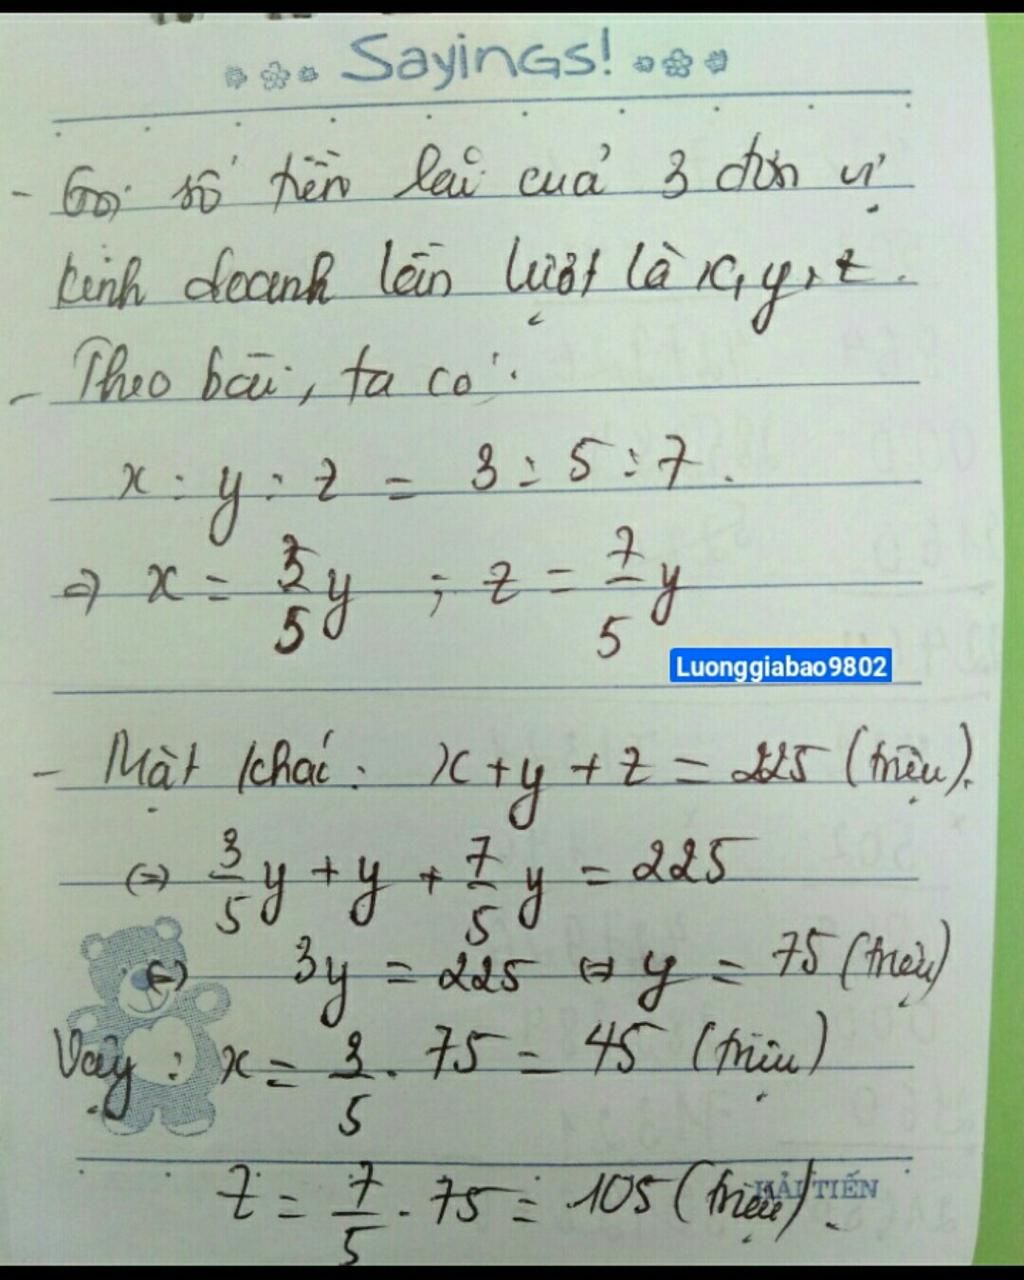 Sayings!
- Gọi số tiền lãi của 3 đơn vị
kinh doanh lần lượt là x, y, z.
- Theo bài, ta có:
x : y : z = 3 : 5 : 7.
⇒ x = 3/5 y ; z = 7/5 y
Luonggiabao9802
- Mặt khác: x + y + z = 225 (triệu).
(=) 3/5 y + y + 7/5 y = 225
(=) 3y = 225 (=) y = 75 (triệu)
Vậy : x = 3/5 . 75 = 45 (triệu)
z = 7/5 . 75 = 105 (triệu).
HẢI TIẾN